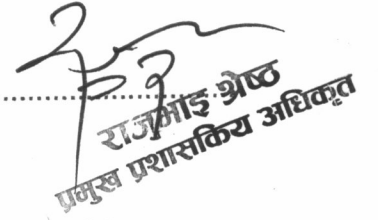 राजुभाइ श्रेष्ठ
प्रमुख प्रशासकिय अधिकृत